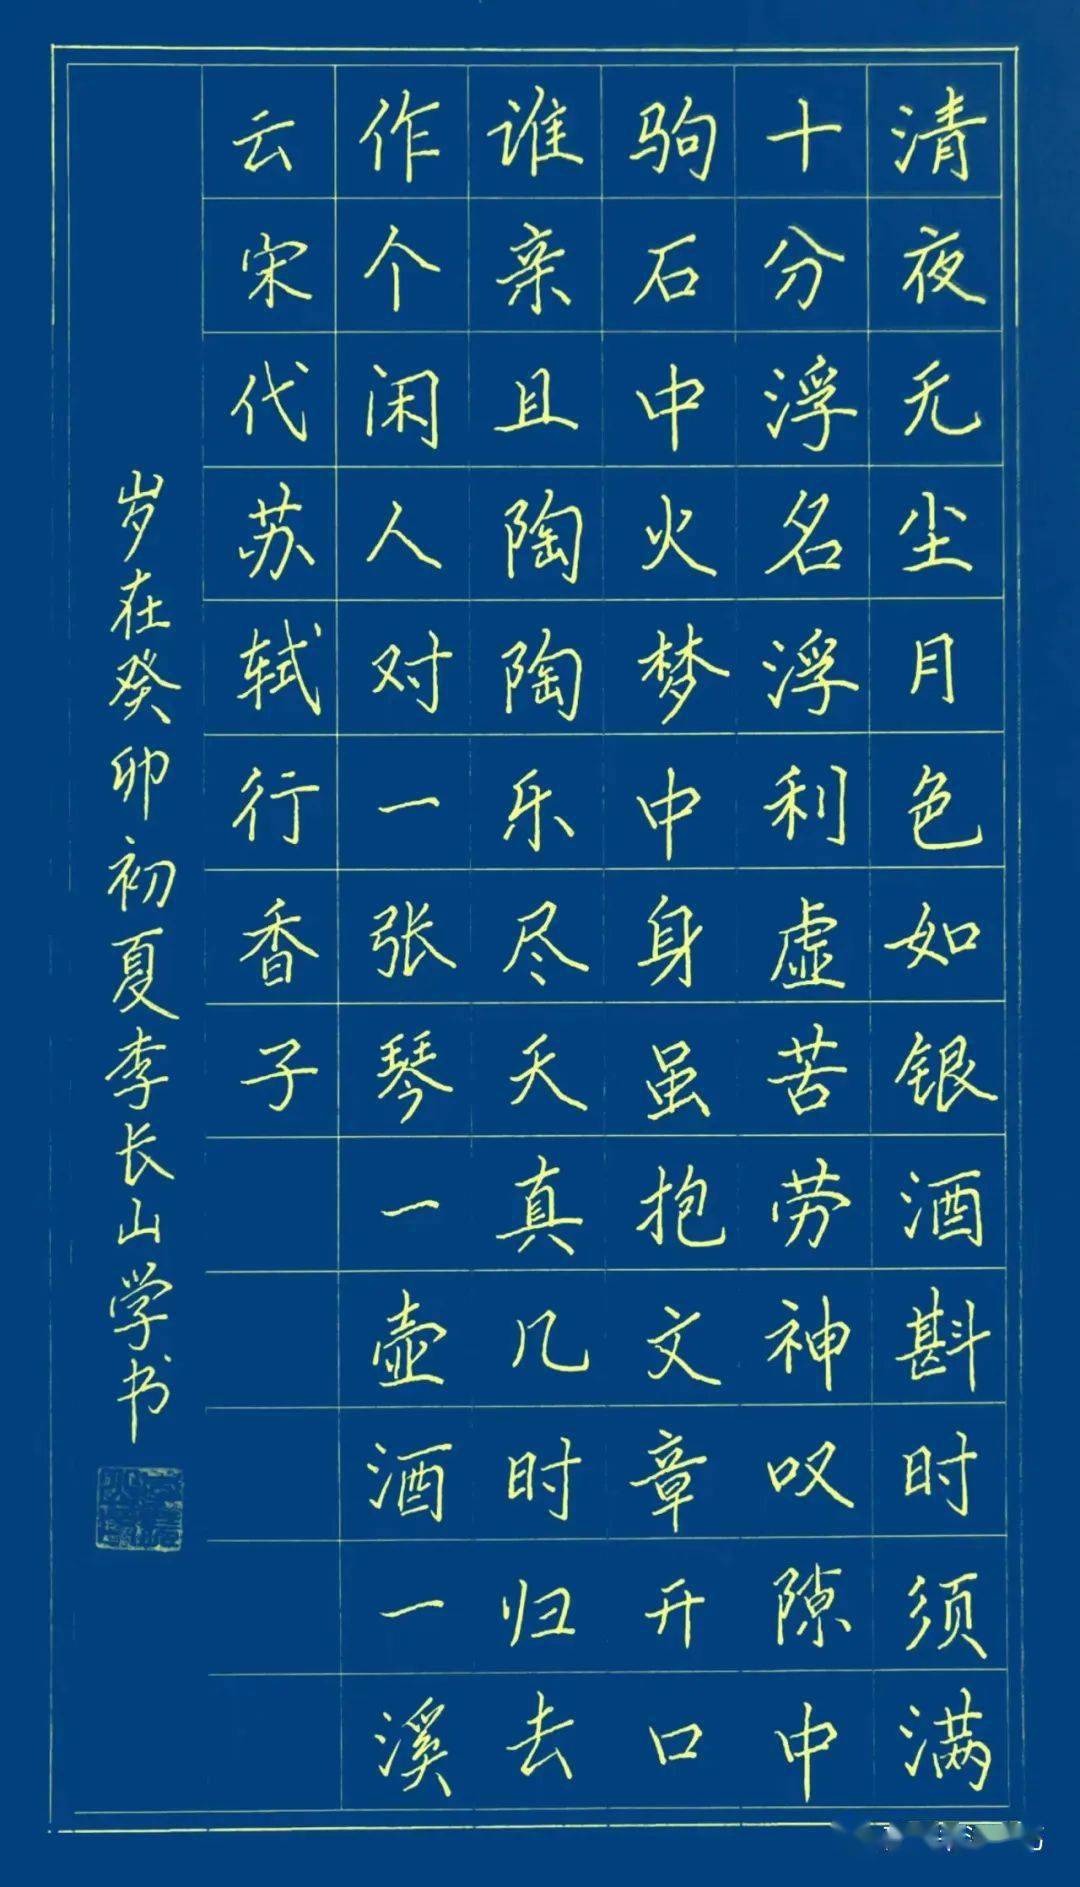 清夜无尘月色如银酒斟时须满
十分浮名浮利虚苦劳神叹隙中
驹石中火梦中身虽抱文章开口
谁亲且陶陶乐尽天真几时归去
作个闲人对一张琴一壶酒一溪
云宋代苏轼行香子
岁在癸卯初夏李长山学书